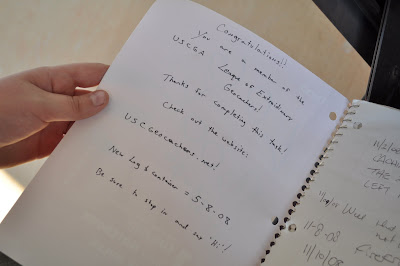 Congratulations!!
You are a member of the
USCGA
League of Extraordinary
Geocachers!
Thanks for completing this task!
Check out the website:
USCGeocachers.net!
New Log & Container = 5-8-08
Be sure to stop in and say "Hi"!
11/2/0
CACH
THE
LEFT
11/4/
Was
not
11-8-08
11/10/08